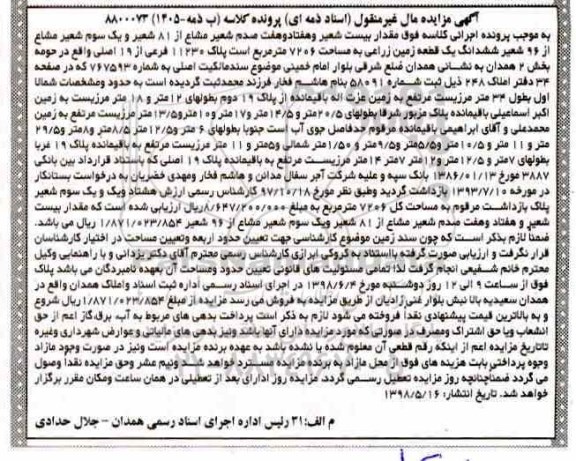 آگهی مزایده مال غیرمنقول (اسناد ذمه ای) پرونده کلاسه (ب ذمه -۱۴۰۵) ۸۸۰۰۰۷۳
به موجب پرونده اجرائی کلاسه فوق مقدار بیست شعیر وهفتادوهفت صدم شعیر مشاع از ۸۱ شعیر و یک سوم شعیر مشاع
از ۹۶ شعیر ششدانگ یک قطعه زمین زراعی به مساحت ۷۲۰۶ مترمربع است پلاک ۱۱۲۳۰ فرعی از ۱۹ اصلی واقع در حومه
بخش ۲ همدان به نشانی همدان ضلع شرقی بلوار امام خمینی موضوع سندمالکیت اصلی به شماره ۷۶۷۵۹۳ که در صفحه
۳۴ دفتر املاک ۲۴۸ ذیل ثبت شماره ۵۸۰۹۱ بنام هاشم فخار فرزند محمدثبت گردیده است به حدود ومشخصات شمالا
اول بطول ۳۴ متر مرزیست مرتفع به زمین عزت اله باقیمانده از پلاک ۱۹ دوم بطولهای ۱۲متر و ۱۸ متر مرزیست به زمین
اکبر اسماعیلی باقیمانده پلاک مزبور شرقا بطولهای ۲۰/۵متر و ۱۴/۵متر و۱۷متر و۱۰متر و۱۳/۵متر مرزیست مرتفع به زمین
محمدعلی و آقای ابراهیمی باقیمانده مرقوم حدفاصل جوی آب است جنوبا بطولهای ۶ متر و۱۲/۵متر و۸/۵متر و۸متر و۲۹/۵
متر و ۱۱ متر و ۱۰/۵متر و۵/۵متر و۹/۵متر و۱/۵۰متر شمالا و۵متر و ۱۱ متر مرزیست مرتفع به باقیمانده پلاک ۱۹ غربا
بطولهای ۷متر و ۱۲/۵متر و۱۲متر و۷متر ۱۴ متر مرزیست مرتفع به باقیمانده پلاک ۱۹ اصلی که باستناد قرارداد بین بانکی
۳۸۸۷ مورخ ۱۳۸۶/۰۱/۱۳ بانک سپه و علیه شرکت آجر سفال مدائن و هاشم فخار ومهدی خضریان به درخواست بستانکار
در مورخه ۱۳۹۳/۷/۱۰ بازداشت گردید وطبق نظر مورخ ۹۷/۱۰/۱۸ کارشناس رسمی ارزش هشتاد ویک و یک سوم شعیر
پلاک بازداشت مرقوم به مساحت کل ۷۲۰۶ مترمربع به مبلغ ۸/۶۴۷/۲۰۰/۰۰۰ریال ارزیابی شده است که مقدار بیست
شعیر و هفتاد وهفت صدم شعیر مشاع از ۸۱ شعیر ویک سوم شعیر مشاع از ۹۶ شعیر ۱/۸۷۱/۰۲۳/۸۵۴ ریال می باشد.
ضمنا لازم بذکر است که چون سند زمین موضوع کارشناسی جهت تعیین حدود اربعه وتعیین مساحت در اختیار کارشناسان
قرار نگرفت و ارزیابی صورت گرفته بااستناد به کروکی ابرازی کارشناس رسمی محترم آقای ذکریزدانی و با راهنمایی وکیل
محترم خانم شفیعی انجام گرفت لذا تمامی مسئولیت های قانونی تعیین حدود ومساحت آن بعهده نامبردگان می باشد پلاک
فوق از ساعت ۹ الی ۱۲ روز دوشنبه مورخ ۱۳۹۸/۶/۴ در اجرای اسناد رسمی اداره ثبت اسناد واملاک همدان واقع در
همدان سعیدیه بالا نبش بلوار غنی زادیان از طریق مزایده به فروش می رسد مزایده از مبلغ ۱/۸۷۱/۰۲۳/۸۵۴ریال شروع
و به بالاترین قیمت پیشنهادی نقدا فروخته می شود لازم به ذکر است پرداخت بدهی های مربوط به آب، برق،گاز اعم از حق
انشعاب ویا حق اشتراک ومصرف در صورتی که مورد مزایده دارای آنها باشد ونیز بدهی های مالیاتی و عوارض شهرداری وغیره
تاتاریخ مزایده اعم از اینکه رقم قطعی آن معلوم شده یا نشده باشد به عهده برنده مزایده است ونیز در صورت وجود مازاد
وجوه پرداختی بابت هزینه های فوق ازمحل مازاد به برنده مزایده مسترد خواهد شد ونیم عشر وحق مزایده نقدا وصول
می گردد ضمناچنانچه روز مزایده تعطیل رسمی گردد، مزایده روز اداری بعد از تعطیلی در همان ساعت ومکان مقرر برگزار
خواهد شد. تاریخ انتشار: ۱۳۹۸/۵/۱۶
م الف:۳۱ رئیس اداره اجرای اسناد رسمی همدان - جلال حدادی